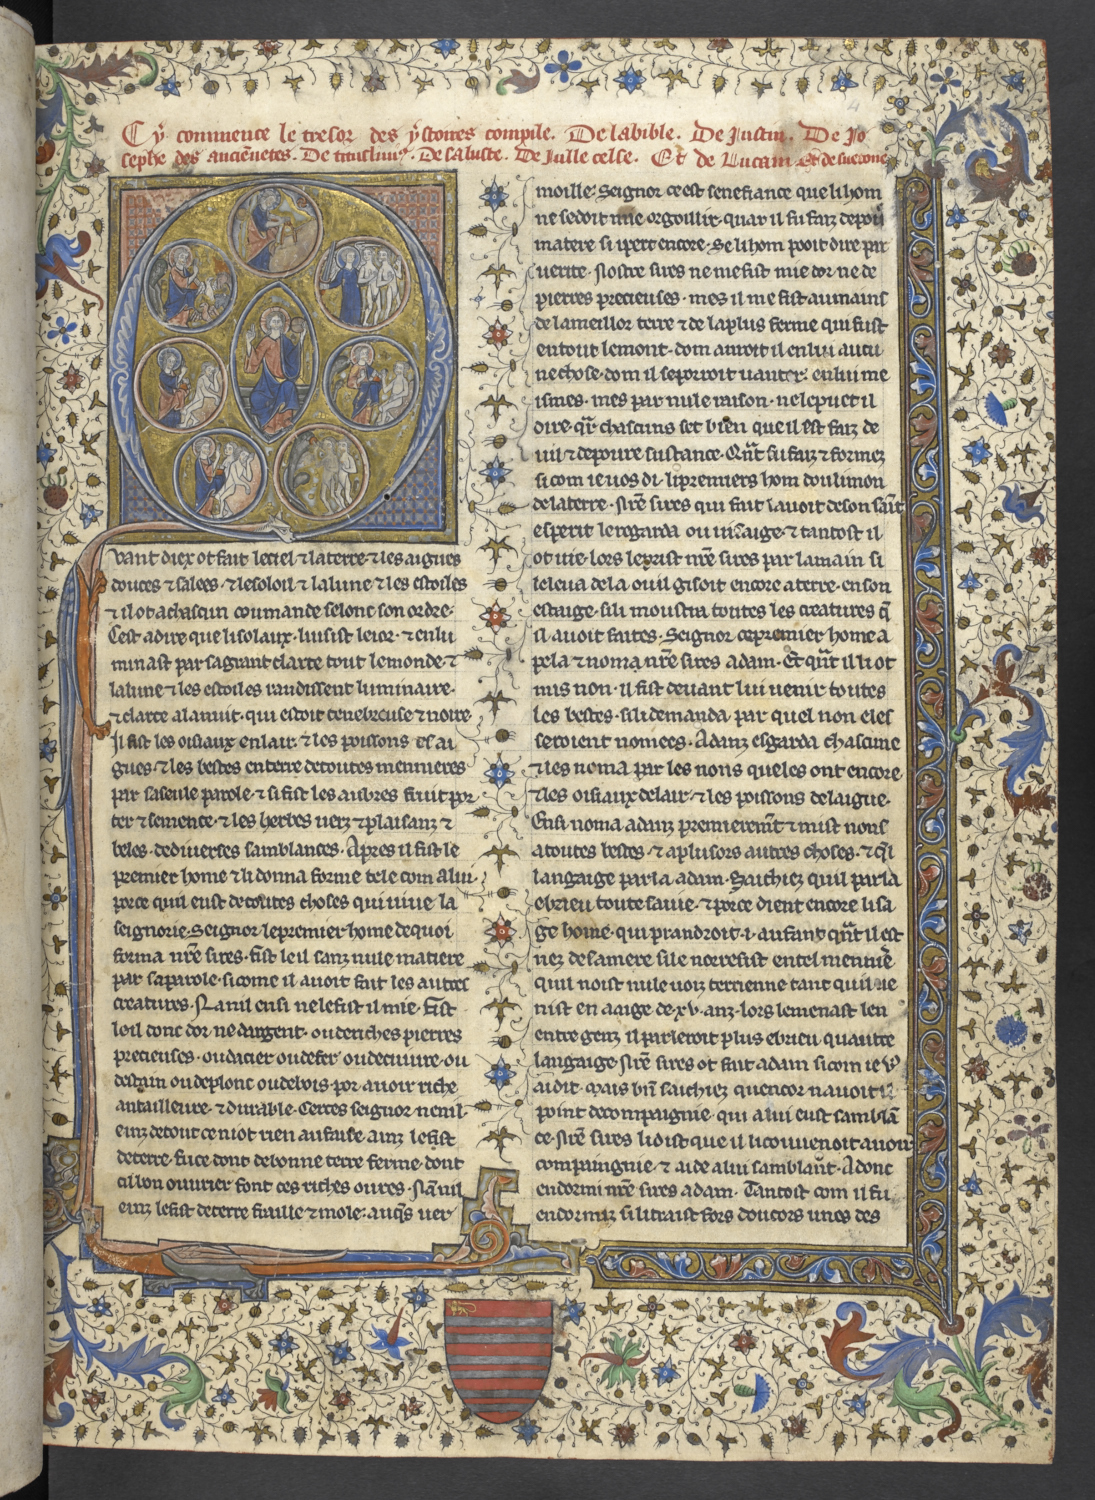 Cy commence le tresor des ystoires compile. De la bible. De Justin. De Jo
sephe des ancienetes. De titus livius. De saluste. De Julle celse. Et de Lucain. Et de suetone
Quant diex ot fait le ciel ⁊ la terre ⁊ les aigues
douces ⁊ salees. ⁊ le soloil ⁊ la lune ⁊ les estoiles
⁊ il ot a chascun coumande selonc son ordre.
C'est a dire que li solaux. luisist le ior. ⁊ enlu
minast par sa grant clarte tout le monde. ⁊
la lune ⁊ les estoiles randissent luminaire.
⁊ clarte a la nuit. qui estoit tenebreuse ⁊ noire
Il fist les oisiaux en lair. ⁊ les poissons es ai
gues ⁊ les bestes en terre de toutes mennieres
par sa seule parole ⁊ si fist les aubres fruit por
ter ⁊ semence. ⁊ les herbes uerz ⁊ plaisanz ⁊
beles. de diuerses samblances. Apres il fist le
premier home ⁊ li donna forme tele com a lui.
porce quil eust de toutes choses qui uiue la
seignorie. Seignor le premier home de quoi
forma nre sires. fist le il sanz nule matiere
par sa parole. si come il auoit fait les autres
creatures. Nanil ensi ne le fist il mie. Fist
loil donc dor ne dargent. ou de riches pierres
precieuses. ou dacier ou de fer ou de cuiure. ou
destain ou de plonc ou de bois. por auoir riche
antailleure. ⁊ durable. Certes seignor nenil.
einz de tout ce niot rien au faire ainz le fist
de terre. fu ce dont de bonne terre ferme. dont
cil bon ouurier font ces riches oures. Nanil
einz le fist de terre fraille ⁊ mole: auqs uer
moille. Seignor ce est senefiance que li hom
ne se doit mie orgoillir. quar il fu faiz de poure
matere si ipert encore. Se li hom pooit dire par
uerite. Nostre sires ne me fist mie dor ne de
pierres precieuses. mes il me fist au mains
de la meillor terre ⁊ de la plus ferme qui fust
en tout le mont. dom auroit il en lui aucu
ne chose. dom il se porroit uanter. en lui me
ismes. mes par nule raison. ne le puet il
dire. qr chascuns set bien que il est faiz de
uil ⁊ de poure sustance. Qnt fu faiz ⁊ formez
si com ie uos di. li premiers hom dou limon
de la terre. Nre sires qui fait lauoit de son saint
esperit le regarda ou uisaige. ⁊ tantost il
ot uie. lors le prist nre sires par la main si
le leua de la ou il gisoit encore a terre. en son
estaige. si li moustra toutes les creatures q̄
il auoit faites. Seignor ce premier home a
pela ⁊ noma nre sires adam. Et qnt il li ot
mis non. il fist deuant lui uenir toutes
les bestes. si li demanda. par quel non eles
seroient nomees. Adanz esgarda chascune
⁊ les noma par les nons queles ont encore
⁊ les oisiaux de lair. ⁊ les poissons de laigue.
Ensi noma adanz premieremt ⁊ mist nons
a toutes bestes. ⁊ a plusors autres choses. ⁊ ql
langaige parla adam. Saichiez quil parla
ebrieu toute sa uie. ⁊ porce dient encore li sa
ge home. qui prandroit .i. anfant qnt il est
nez de sa mere si le norresist en tel menniere
quil noist nule uoiz terrienne tant quil ue
nist en aaige de .xv. anz. lors lemenast len
entre genz il parleroit plus ebrieu quautre
langaige. Nre sires ot fait adam si com ie v
ai dit. Mais bn saichiez quencor nauoit il
point de compaignie. qui a lui eust samblan
ce. Nre sires li dist que il li couuenoit auoir
compaingnie. ⁊ aide a lui samblant. Adonc
endormi nre sires adam. Tantost com il fu
endormiz si li traist fors dou cors unes des